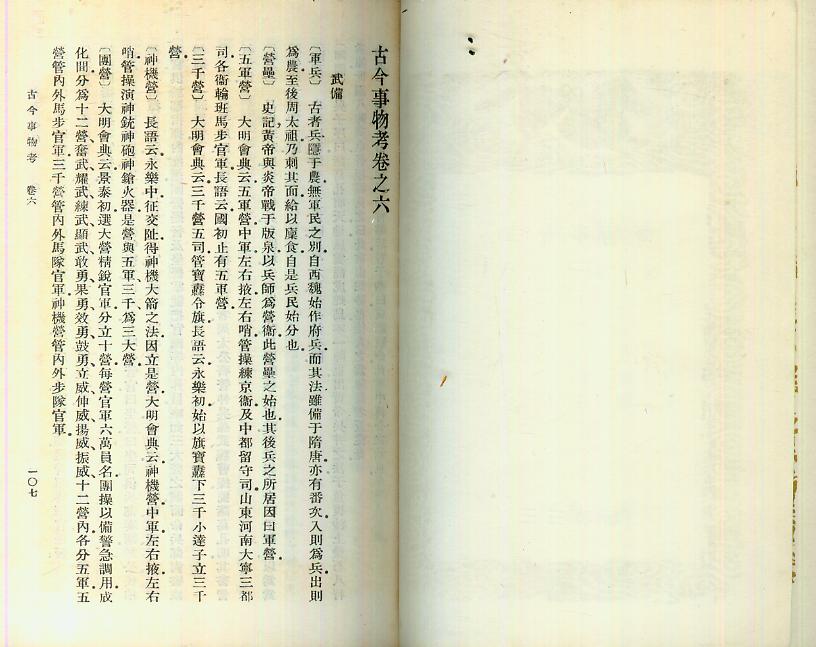 古今事物考卷之六
武備
〔軍兵〕　古者兵隱于農無軍民之別自西魏始作府兵而其法雖備于隋唐亦有番次入則為兵出則
為農至後周太祖乃刺其面給以廩食自是兵民始分也
〔營壘〕　史記黃帝與炎帝戰于版泉以兵師為營衞此營壘之始也其後兵之所居因曰軍營
〔五軍營〕　大明會典云五軍營中軍左右掖左右哨管操練京衞及中都留守司山東河南大寧三都
司各衞輪班馬步官軍長語云國初止有五軍營
〔三千營〕　大明會典云三千營五司管寶纛令旗長語云永樂初始以旗寶纛下三千小達子立三千
營
〔神機營〕　長語云永樂中征交阯得神機大箭之法因立是營大明會典云神機營中軍左右掖左右
哨管操演神銃神砲神鎗火器是營與五軍三千為三大營
〔團營〕　大明會典云景泰初選大營精銳官軍分立十營每營官軍六萬員名團操以備警急調用成
化間分為十二營奮武耀武練武顯武敢勇果勇效勇鼓勇立威伸威揚威振威十二營內各分五軍五
營管內外馬步官軍三千營管內外馬隊官軍神機營管內外步隊官軍
古今事物考　卷六
一〇七